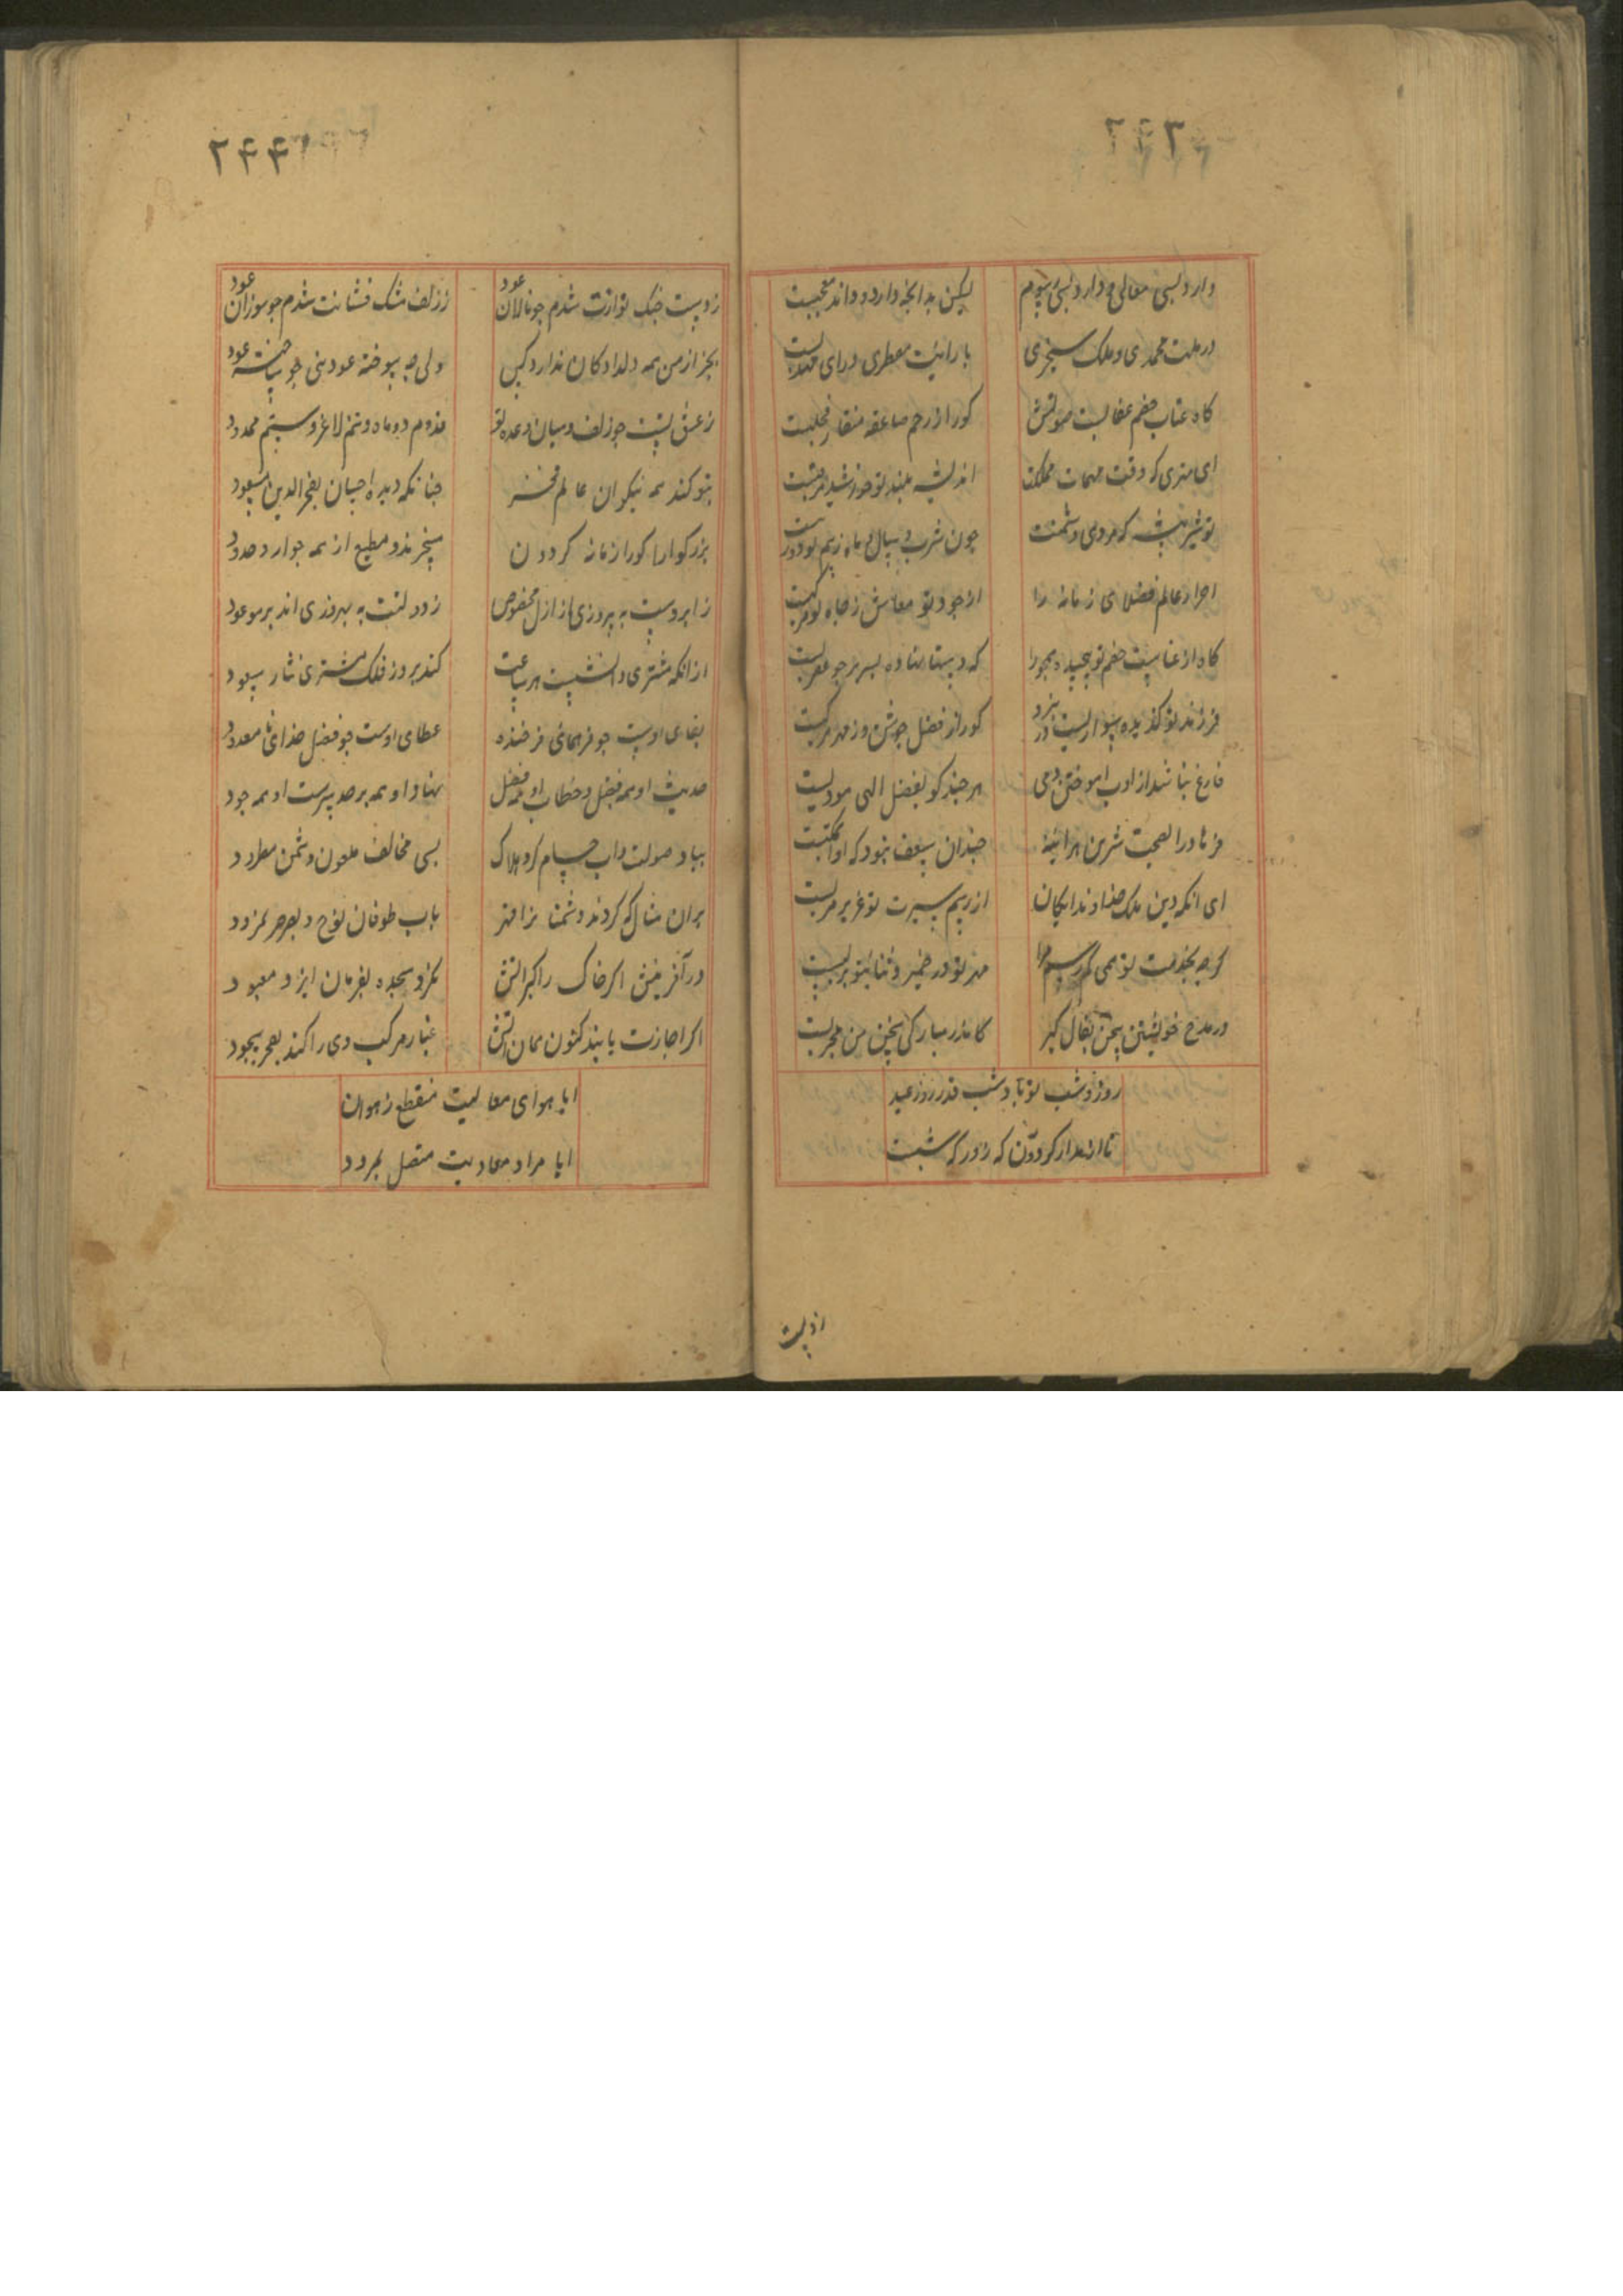 دارد بسی معالی و دارد بسی رسوم
لیکن به انچه دارد و داند معجبست
در ملت محمدی و ملک سنجری
با رایت مطری و رای مهذبست
کاه عتاب خصم عقابیست صولتش
کورا ز زخم صاعقه منقار و مخلبست
ای مهتری که وقت مهمات مملکت
اندیشه بلند تو خورشید مرتبست
تو شیر بیشه کرم و دشمنت
چون
احرار عالم فضلای زمانه را
از جود تو معاش ز جاه تو مرکبست
کاه از عنا
که دستار نهاده بسر بر جو عقربست
فرزند تو کذیده سواریست در نبرد
کورا ز فضل جوشن وز مهر مرکبست
فارغ نباشد از ادب اموختن دمی
هر چند کو بفضل الهی مودبست
فرهاد را بصحبت شرین هراینه
چندان سعف نبود که او را بمکتبست
ای انکه دین ملک خداوند ایکان
از رسم سیرت تو عزیز مرتبست
کرچه بخدمت تو همی کم رسم مرا
مهر تو در ضمیر و ثنای تو بر لبست
در مدح خویشتن بمن بفال کیر
کاندر مبارکی سخن من مجربست
روز و شب تو باد شب قدر و روز عید
تا از مدار کردون که روز و که شبست
از دست
۲۴۴
ز دست جنک نوازت شدم جو نالان عود
ز زلف مشک فشانت شدم جو سوزان عود
بجز از من همه دلدادکان ندارد کس
ولی چه سوخته عود بنی جو ساخته عود
ز عشق پشت جو زلف و میان و عده تو
قدوم دوماه و تنم لاغر و ستم محدود
بتو کند همه نیکوان عالم فخر
جنانکه دیده احسان بفخر الدین مسعود
بزرکوارا کورا زمانه کردون
مسخرند و مطیع از همه جوار و حدود
ز ابروست به پیروزی از ازل مخصوص
ز دولتت به بهروزی اندر موعود
از انکه مشتری دانشیست هر ساعت
کند بروز فلک مشتری نثار سعود
بقای اوست جو فر همای فرخنده
عطای اوست جو فضل خدای نا معدود
حدیث او همه فضل و خطاب او همه فضل
نهاد او همه بر حد سرست او همه جود
بباد صولت و اب حسام کرد هلاک
بسی مخالف ملعون و دشمن مطرود
بران مثال که کردند دشمنا نرا قهر
باب طوفان نوح و بصرصر نمرود
در آفرینش اکر خاک را کبر اتش
نکرد سجده بفرمان ایزد معبود
اکر اجازت یابند کنون همان اتش
غبار مرکب وی را کند بعجز سجود
ایا هوای معالیت منقطع ز هوان
ایا مراد معادیت متصل بمرود